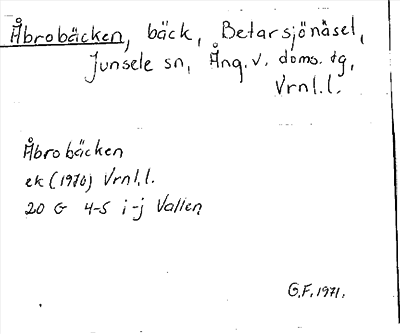 Åbrobäcken, bäck, Betarsjönäsel,
Junsele sn, Ång. v. doms. tg,
Vrnl.l.
Åbrobäcken
ek (1970) Vrnl.l.
20 G 4-5 i-j Vallen
G.F. 1971.